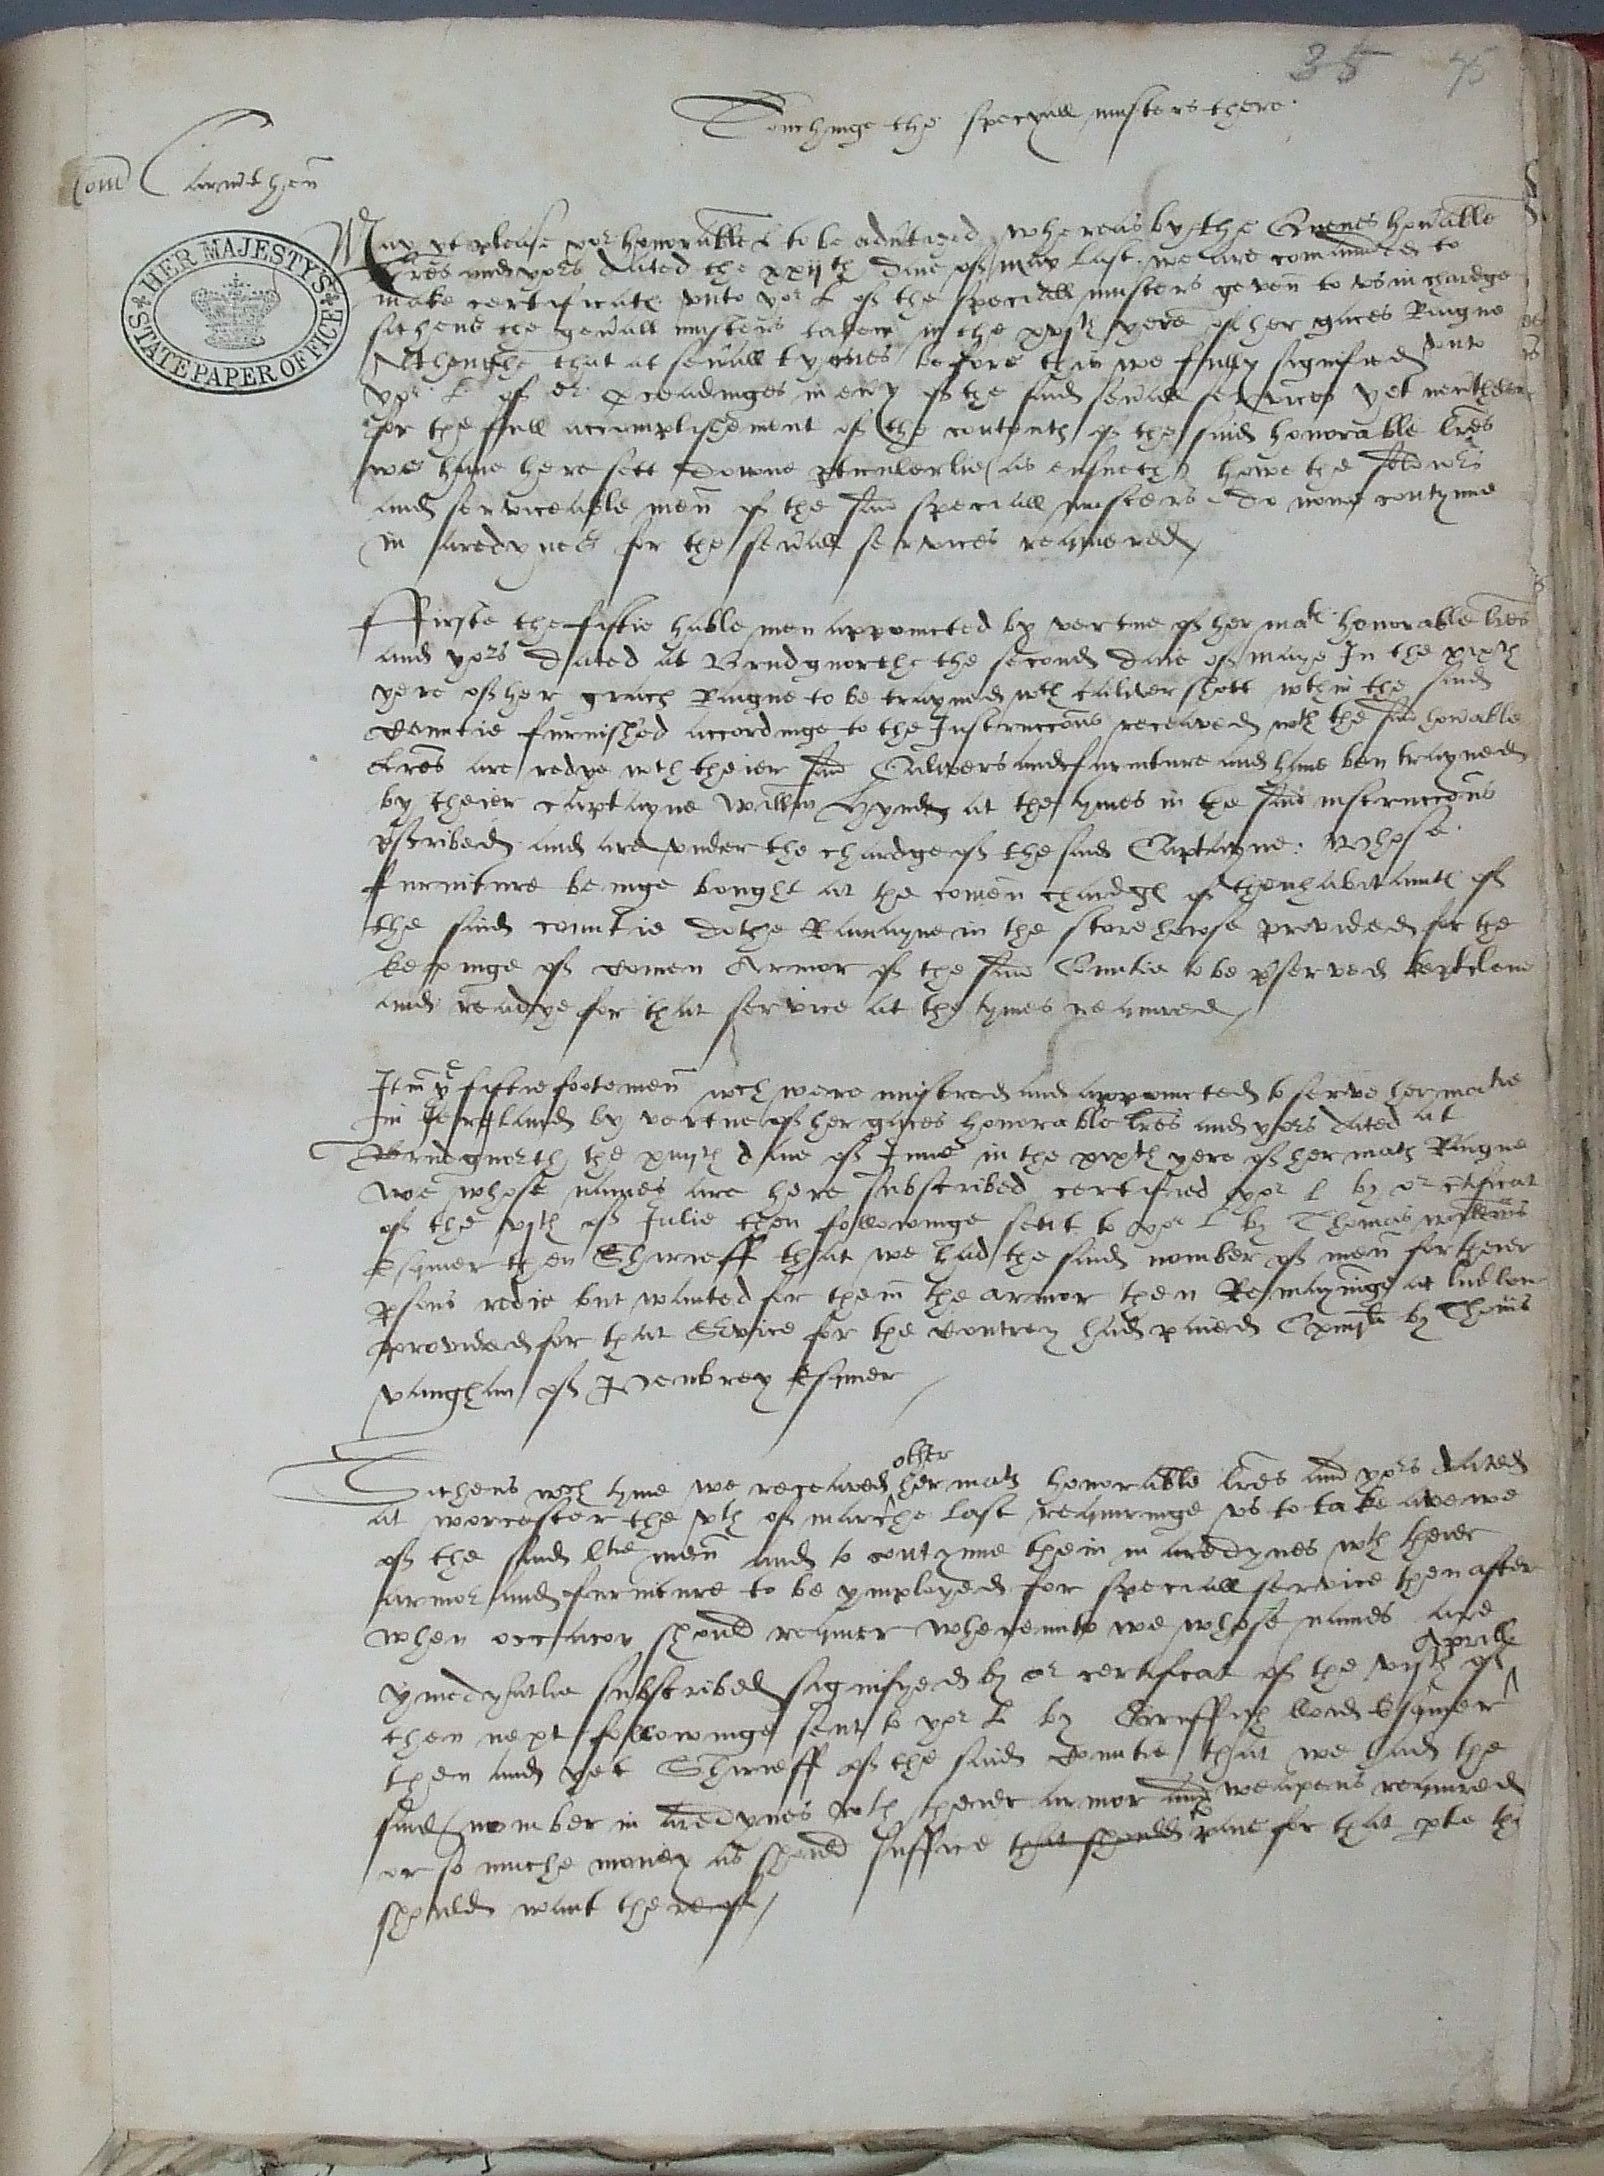 35 75
Touchinge the speciall musters there.
Com Carmthen
HER MAJESTY'S STATE PAPER OFFICE
May yt please yor honorable L to be advtized whereas by the Quenes honorable
Lres and yors dated the xxijth daie of may last we are comaunded to
make certificath unto yor L of the speciall musters geven to us in chardge
sithens the genrall musters taken in the xvjth yere of her graces Raigne
Althoughe that at sevrall tymes before this we fully signified unto
yor L of or pceadinges in evy of the said sevrall services yet nevrtheles
for the full accomplishement of the contenth of the said honorable lres
we have here sett downe pticulerlie (as ensueth) howe the soldiors
and serviceable men of the said speciall musters do nowe contynue
in aredynes for the sevrall services requiered
Firste the fiftie hable men appoincted by vertue of her mats honorable lres
and yors dated at Brudgnorthe the second daie of maye In the xixth
yere of her grach Raigne to be trayned wth caliver shott wthin the said
Countie furnished accordinge to the Instruccons receaved wth the said honorable
Lres are redye wth theier said Calivers and furniture and have ben trayned
by theier captayne Willm at the tymes in the said instruccons
pscribed and are under the chardge of the said Captayne: Whose
furniture beinge bought at the comen chardgh of thenhabitanth of
the said countie dothe Remayne in the storehowse provided for the
kepinge of comen Armor of the said Countie to be pserved kept clene
and readye for that service at the tymes requiered
Itm ye fiftie footemen wch were mustred and appoincted to serve her matie
In Ireland by vertue of her graces honorable lres and yors dated at
Brudgnorth the xiiijth daie of June in the xixth yere of her maties Raigne
We whose names are here subscribed certified yor L by or ctificat
of the vjth of Julie then followinge sent to yor L by Thomas Willms
Esquier then Shirieff that we had the said nomber of men for theier
psons redie but wanted for them the armor then Remayninge at Ludlow
provided for that Svice for the contrey had paied by Thoms
vaughan of Penbrey Esquier
Sithens wch tyme we receaved other her mats honorable lres and yors dated
at worcester the vth of marche last requiringe us to take viewe
of the said Ltie men and to contynue them in aredynes wth theier
armor and furniture to be ymployed for speciall service then after
when occacon should requier whereunto we whose names are
ymedyatlie subscribed signifyed by or certificat of the vijth of Aprill
then next followinge sent to yor L by Gruffith lloid Esquier
then and yet Shirieff of the said Countie that we had the
said nomber in aredynes wth theier armor and weapens required
or so muche money as should suffice that should to paie for that pte thei
should want thereof